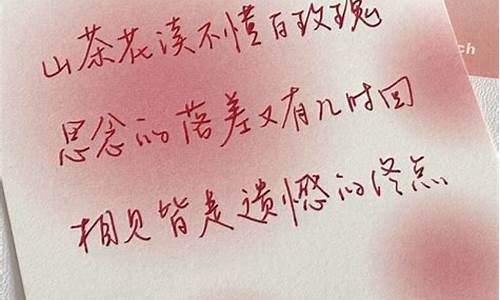 山茶花读不懂白玫瑰
思念的落差又有几时回
相见皆是遗憾的终点
ch